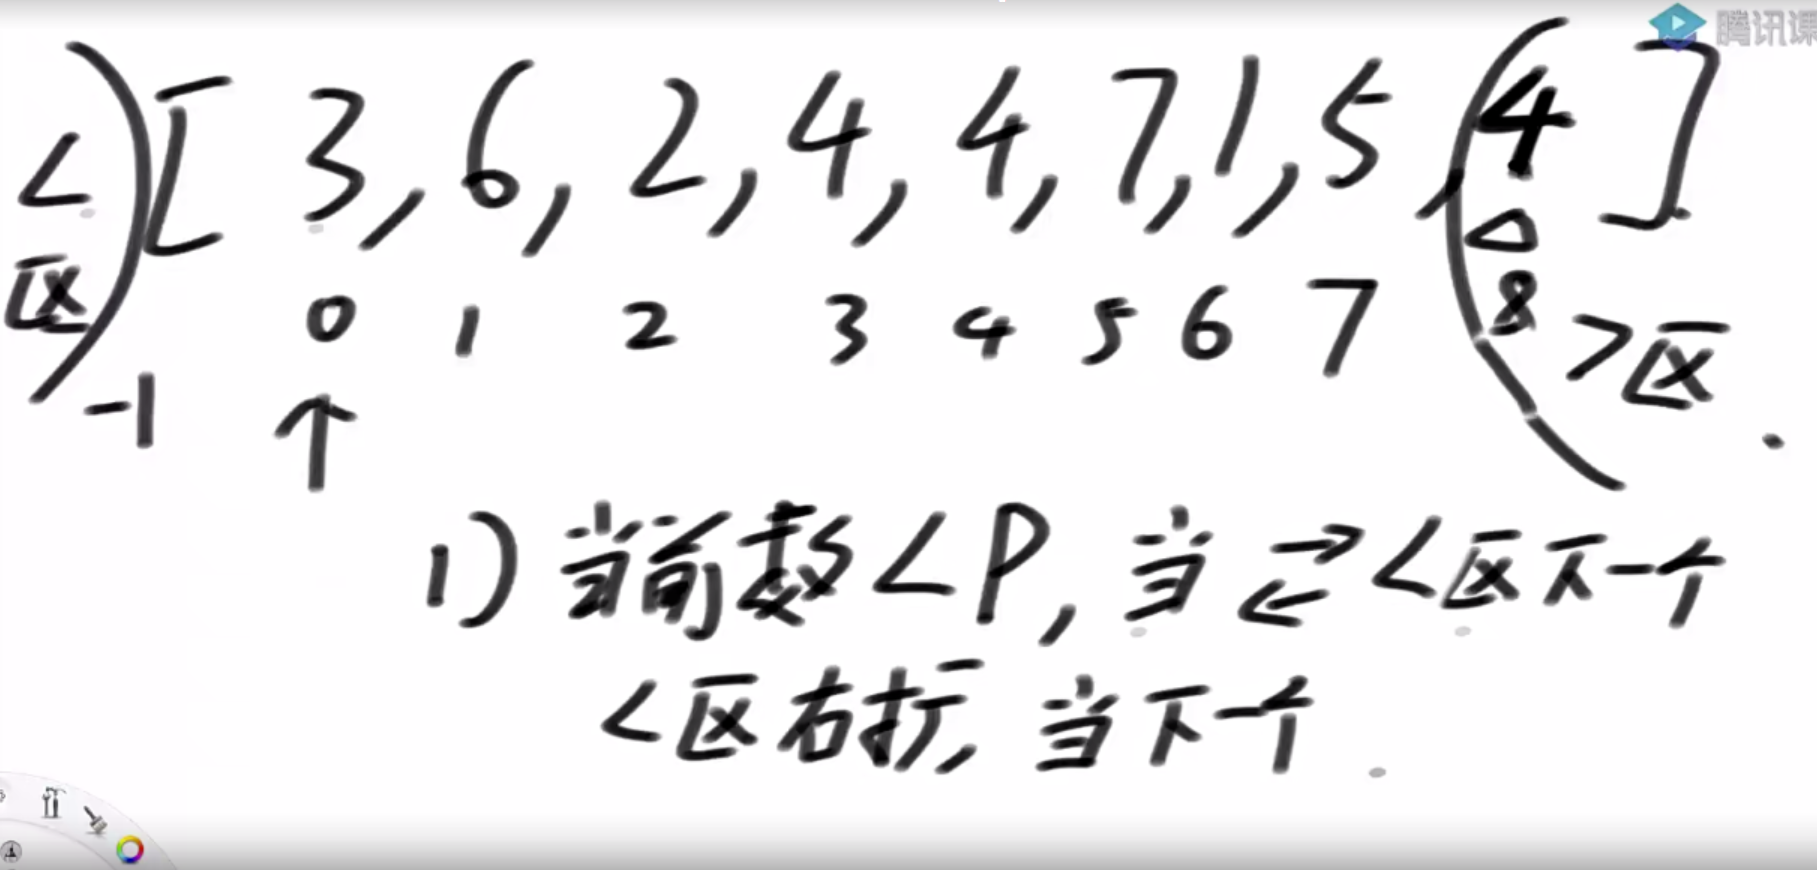 腾讯课
[ 3, 6, 2, 4, 4, 7, 1, 5, ( 4 ]
<区 )
0 1 2 3 4 5 6 7 8
>区
-1 ↑
1) 当前数<P, 当⇄<区下一个
<区右扩, 当下一个